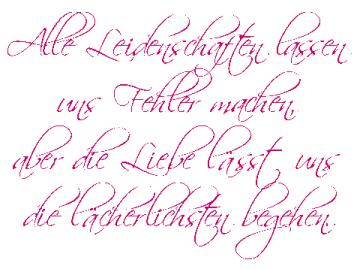 Alle Leidenschaften lassen
uns Fehler machen,
aber die Liebe lässt uns
die lächerlichsten begehen.